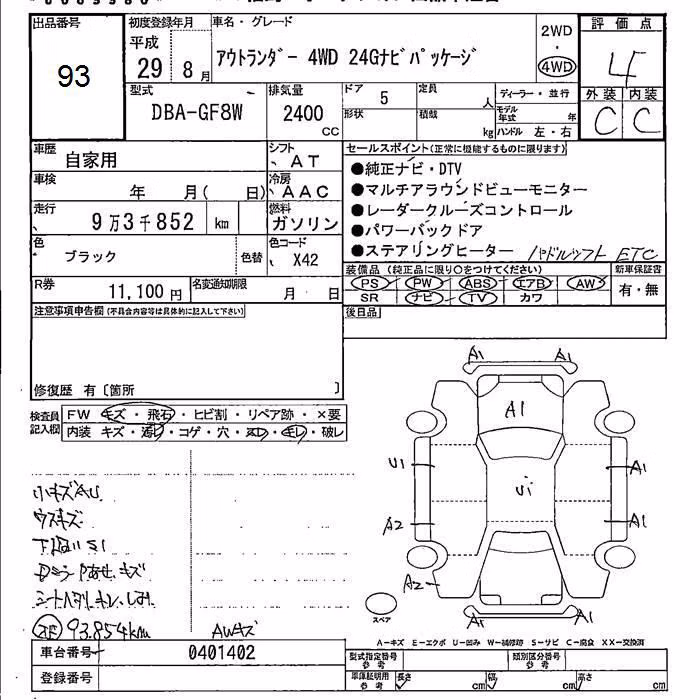 出品番号
93
初度登録年月
平成
29 8月
車名・グレード
アウトランダー 4WD 24Gナビパッケージ
2WD
・
4WD
評価点
4
外装 内装
C C
型式
DBA-GF8W
排気量
2400
CC
ドア 5
定員 人
形状 積載 kg
ディーラー・並行
モデル年式 年
ハンドル 左・右
車歴 自家用
シフト AT
車検 年 月( 日)
冷房 AAC
走行 9万3千852 km
燃料 ガソリン
色 ブラック 色替
色コード X42
R券 11,100円
名変通知期限 月 日
セールスポイント(正常に機能するものに限ります)
●純正ナビ・DTV
●マルチアラウンドビューモニター
●レーダークルーズコントロール
●パワーバックドア
●ステアリングヒーター パドルシフト ETC
装備品 (純正品に限り○をつけてください)
PS PW ABS エアB AW
SR ナビ TV カワ
新車保証書
有・無
後日品
注意事項申告欄(不具合内容等は具体的に記入して下さい)
修復歴 有〔箇所 〕
検査員記入欄
FW キズ・飛石・ヒビ割・リペア跡・×要
内装 キズ・汚レ・コゲ・穴・スレ・モレ・破レ
小キズAU
ウスキズ
下回りS1
93.854km
AWキズ
A1 A1
A1
U1
A1
Ui
A2
A1
A2
A1 A1
スペア
A−キズ E−エクボ U−凹み W−補修跡 S−サビ C−腐食 XX−交換済
車台番号 0401402
登録番号
型式指定番号 参考
類別区分番号 参考
車庫証明用 参考
長さ cm 幅 cm 高さ cm